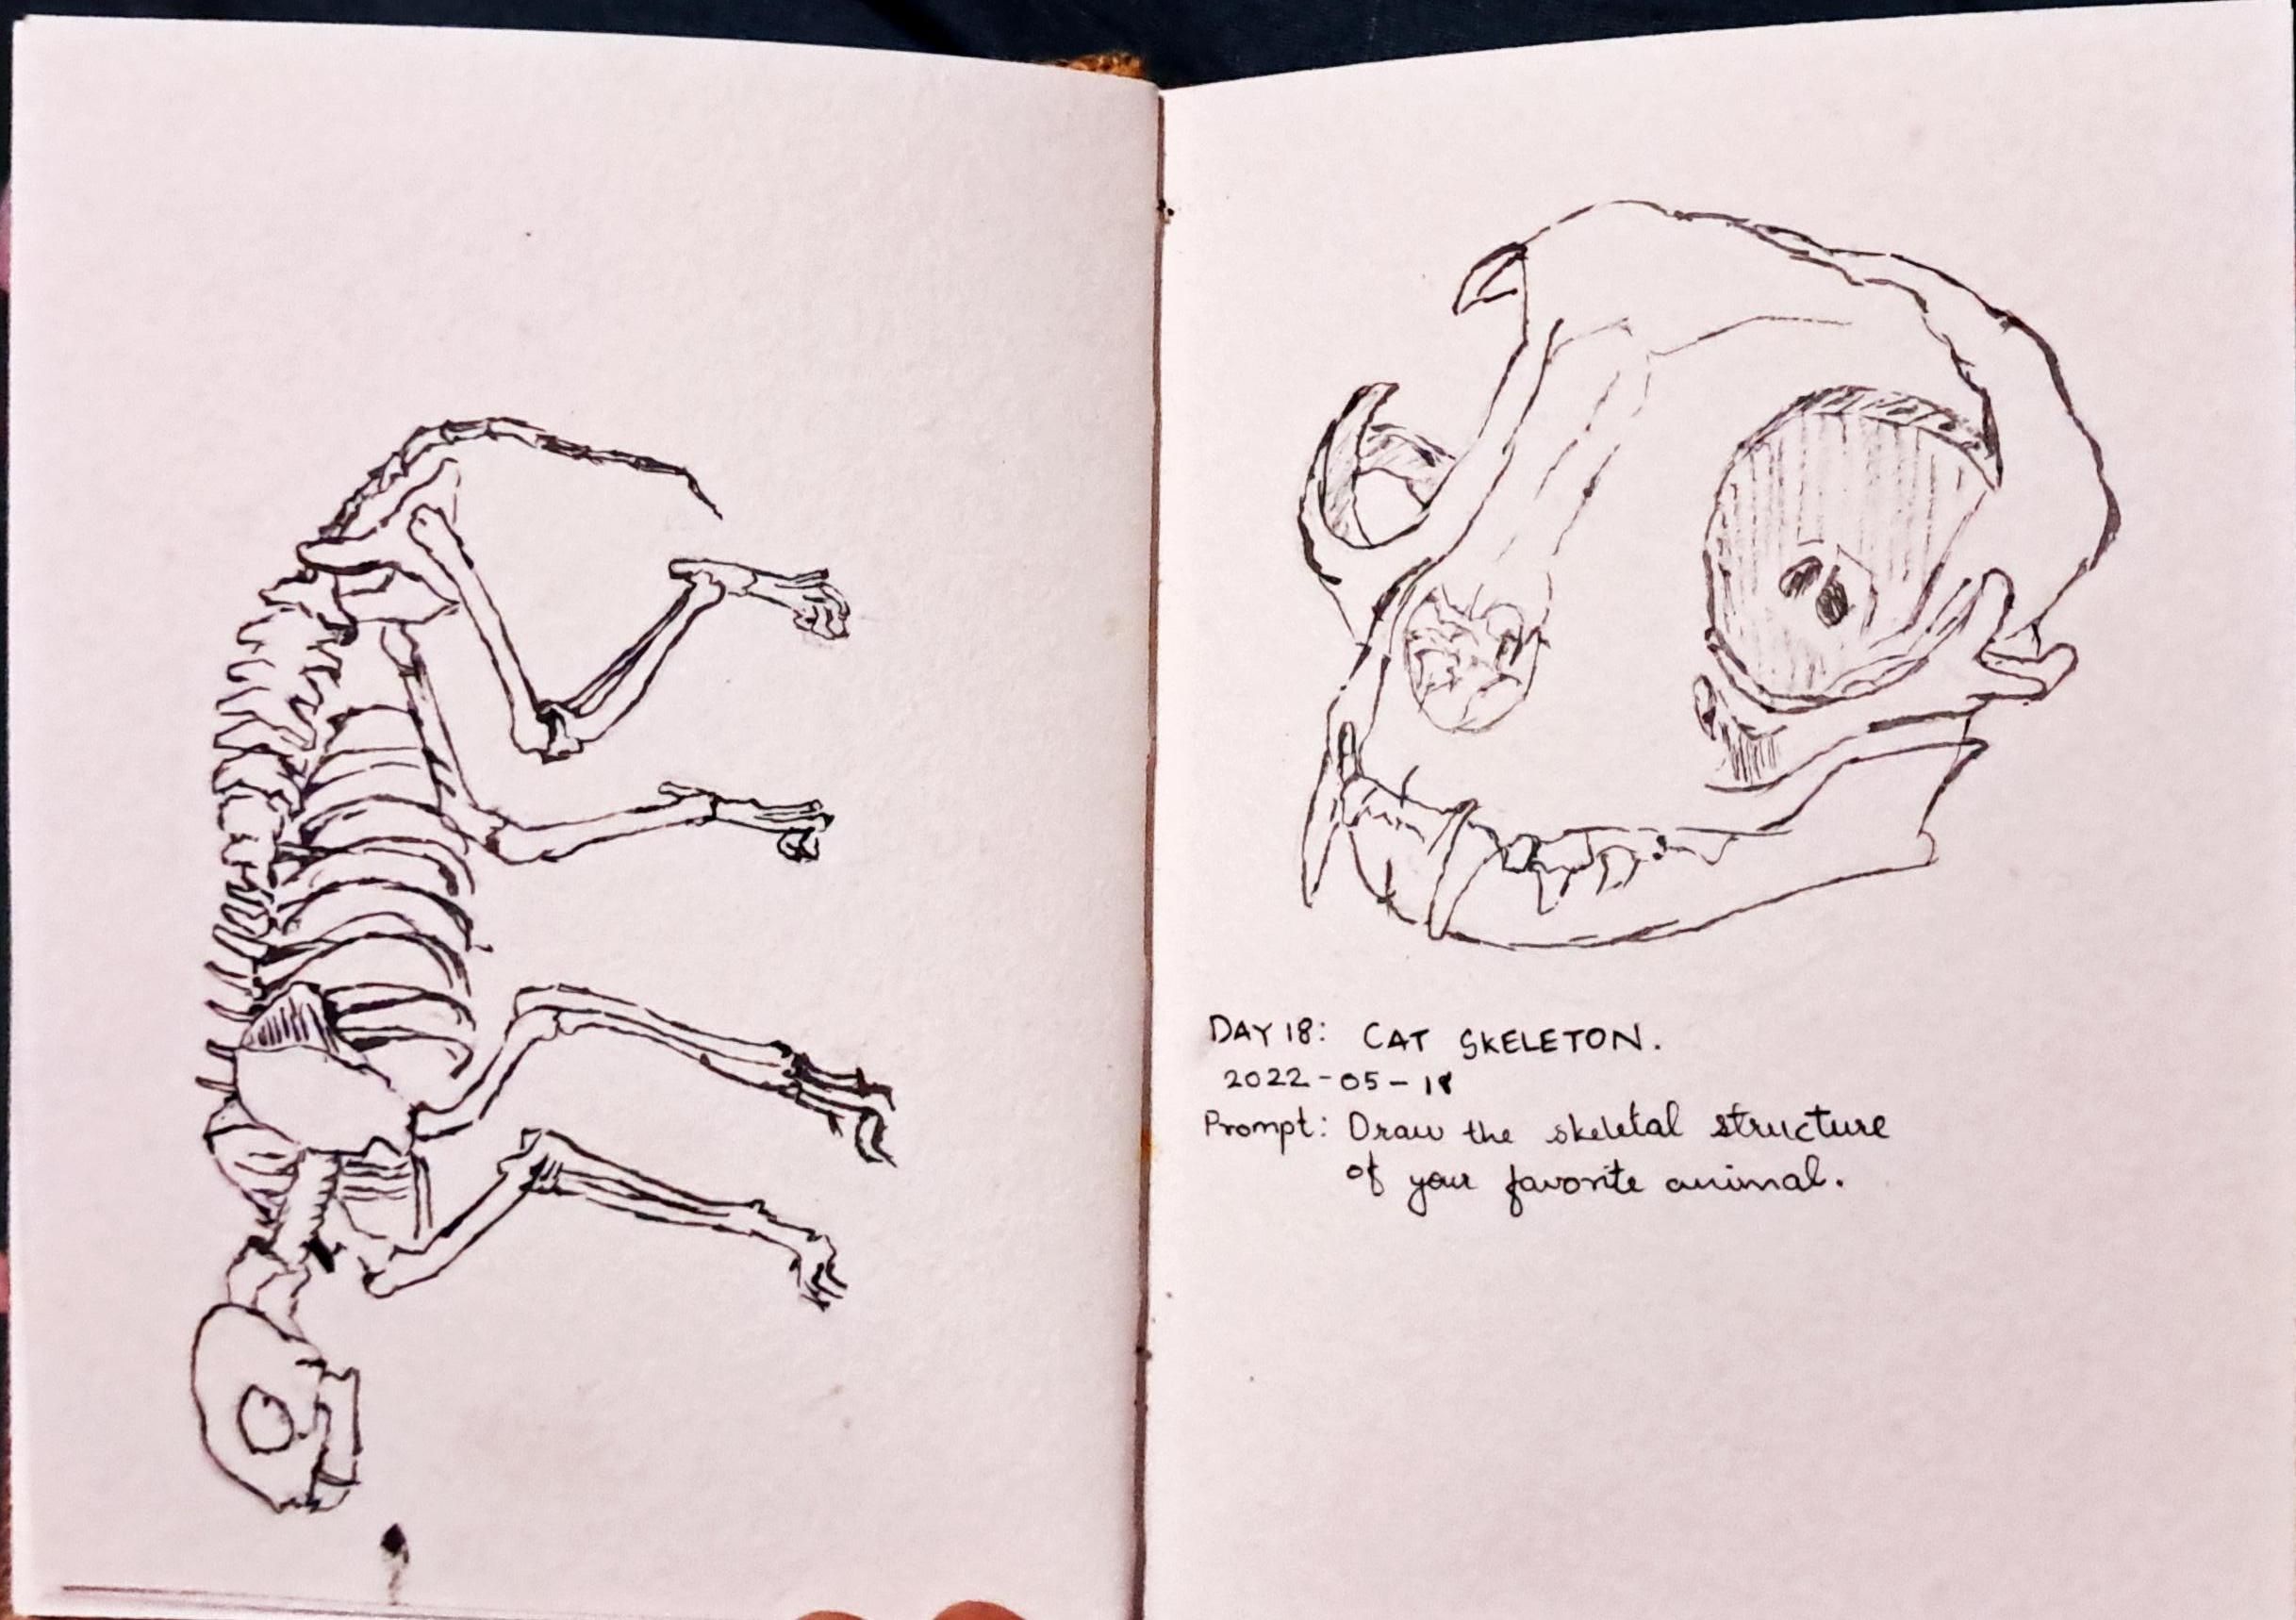 DAY 18: CAT SKELETON.
2022-05-18
Prompt: Draw the skeletal structure
of your favorite animal.